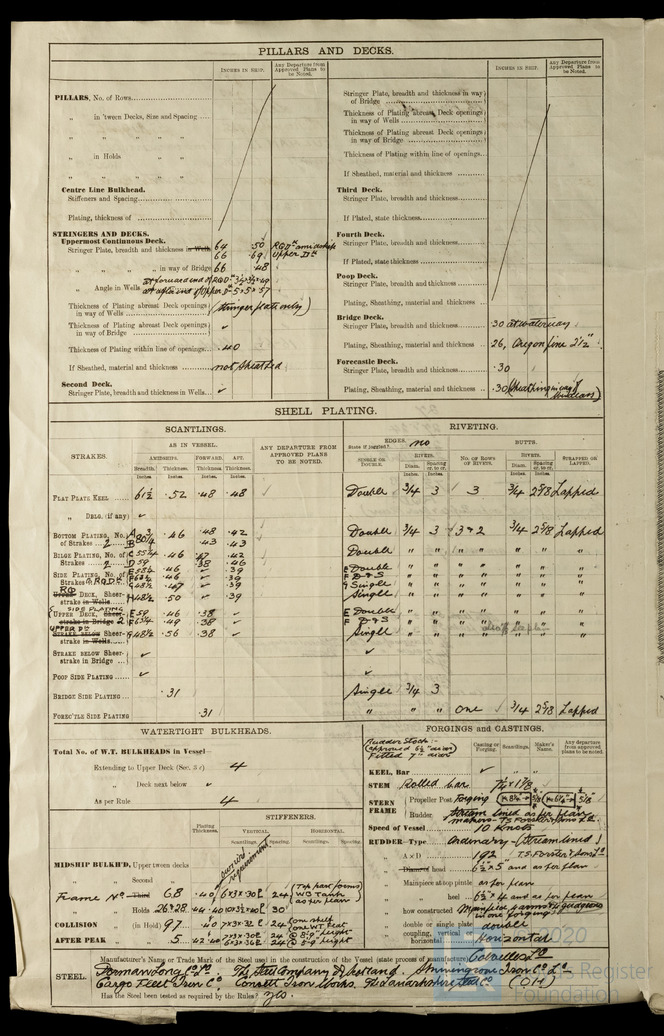 PILLARS AND DECKS.
INCHES IN SHIP.
Any Departure from Approved Plans to be Noted.
PILLARS, No. of Rows
„ in 'tween Decks, Size and Spacing
„ „ „ „
„ in Holds „ „
„ „ „ „
Centre Line Bulkhead.
Stiffeners and Spacing
Plating, thickness of
STRINGERS AND DECKS.
Uppermost Continuous Deck.
Stringer Plate, breadth and thickness in Wells 64 .50 RQDk amidships
66 .69 Upper Dk
„ „ in way of Bridge 66 .48
„ Angle in Wells
Thickness of Plating abreast Deck openings in way of Wells (Stringer plate only)
Thickness of Plating abreast Deck openings in way of Bridge ✓
Thickness of Plating within line of openings .40
If Sheathed, material and thickness not sheathed
Second Deck.
Stringer Plate, breadth and thickness in Wells ✓
INCHES IN SHIP.
Any Departure from Approved Plans to be Noted.
Stringer Plate, breadth and thickness in way of Bridge
Thickness of Plating abreast Deck openings in way of Wells
Thickness of Plating abreast Deck openings in way of Bridge
Thickness of Plating within line of openings
If Sheathed, material and thickness
Third Deck.
Stringer Plate, breadth and thickness
If Plated, state thickness
Fourth Deck.
Stringer Plate, breadth and thickness
If Plated, state thickness
Poop Deck.
Stringer Plate, breadth and thickness
Plating, Sheathing, material and thickness
Bridge Deck.
Stringer Plate, breadth and thickness .30 at waterway
Plating, Sheathing, material and thickness .26, Oregon pine 2½"
Forecastle Deck.
Stringer Plate, breadth and thickness .30
Plating, Sheathing, material and thickness .30 (Sheathing in way of Windlass)
SHELL PLATING.
SCANTLINGS.
RIVETING.
STRAKES.
AS IN VESSEL.
AMIDSHIPS. FORWARD. AFT.
Breadth. Thickness. Thickness. Thickness.
Inches. Inches. Inches. Inches.
ANY DEPARTURE FROM APPROVED PLANS TO BE NOTED.
EDGES. no
State if joggled?
SINGLE OR DOUBLE.
RIVETS.
Diam. Spacing cr. to cr.
BUTTS.
NO. OF ROWS OF RIVETS.
RIVETS.
Diam. Spacing cr. to cr.
STRAPPED OR LAPPED.
FLAT PLATE KEEL 61½ .52 .48 .48 Double ¾ 3 3 ¾ 2⅝ Lapped
„ DBLG. (if any) ✓
BOTTOM PLATING, No. of Strakes 2 A B 80¼ .46 .48 .42 .43 .43 Double ¾ 3 3 & 2 ¾ 2⅝ Lapped
BILGE PLATING, No. of Strakes 2 C 55¼ .46 .47 .42 D 59 .46 .38 .46 Double
SIDE PLATING, No. of Strakes RQDk E Double F D & S G Single
RQ UPPER DECK, Sheerstrake in Wells H 48½ .50 ✓ .39 Single
UPPER DECK, SIDE PLATING Sheerstrake in Bridge 2 E 59 .46 .38 ✓ F 63¼ .49 .38 ✓ E Double F D & S
UPPER Dk STRAKE BELOW Sheerstrake in Wells G 48½ .56 .38 ✓ Single
STRAKE BELOW Sheerstrake in Bridge ✓ ✓
POOP SIDE PLATING ✓ ✓
BRIDGE SIDE PLATING .31 Single ¾ 3
FOREC'TLE SIDE PLATING .31 „ „ „ One ¾ 2⅝ Lapped
WATERTIGHT BULKHEADS.
Total No. of W.T. BULKHEADS in Vessel—
Extending to Upper Deck (Sec. 3 c) 4
„ Deck next below ✓
As per Rule 4
Plating Thickness.
STIFFENERS.
VERTICAL. HORIZONTAL.
Scantlings. Spacing. Scantlings. Spacing.
MIDSHIP BULKH'D, Upper tween decks
„ „ Second „
Frame No Third 68 .40 6×3×.30 24 (Top part forms WB Tank as per plan)
„ Holds 26 & 28 30
COLLISION „ (in Hold) 97 .40 7×3×.32 24
AFTER PEAK „ „ 5
FORGINGS and CASTINGS.
Rudder Stock:- (approved 6½" diam Fitted 7" diam)
Casting or Forging. Scantlings. Maker's Name. Any departure from approved plans to be noted.
KEEL, Bar ✓
STEM Rolled bar 7¼ × 1⅞
STERN FRAME
Propeller Post Forging
Rudder „ Stream lined as per plan
Speed of Vessel 10 Knots
RUDDER—Type Ordinary (Streamlined)
A × D 192 T.S. Forster & Sons Ld
Diam. of head 6½ × 5 and as per plan
Mainpiece at top pintle as per plan
„ heel 6½ × 4 and as per plan
how constructed Mainpiece, arms & gudgeons in one forging
double or single plate double
coupling, vertical or horizontal Horizontal
STEEL.
Manufacturer's Name or Trade Mark of the Steel used in the construction of the vessel (state process of manufacture) Colvilles Ld
Dorman Long & Co Ld. The Steel Company of Scotland. Skinningrove Iron Co Ld
Cargo Fleet Iron Co. Consett Iron Works. The Lanarkshire Steel Co (O.H.)
Has the Steel been tested as required by the Rules? Yes.
© 2020
Lloyd's Register
Foundation